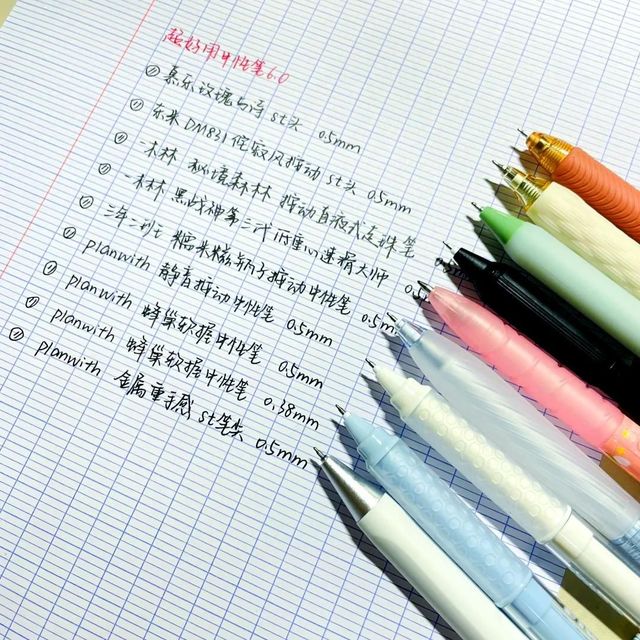 超好用中性笔6.0
慕乐玫瑰与诗 st头 0.5mm
东米DM831侘寂风按动 st头 0.5mm
一木林 秘境森林 按动直液式走珠笔
一木林 黑战神第三代 低重心速消大师 0.
三年二班 糯米糍钠子按动中性笔 0.5m
planwith 静音按动中性笔 0.5mm
planwith 蜂巢软握中性笔 0.5mm
planwith 蜂巢软握中性笔 0.38mm
planwith 金属重手感 st笔头 0.5mm